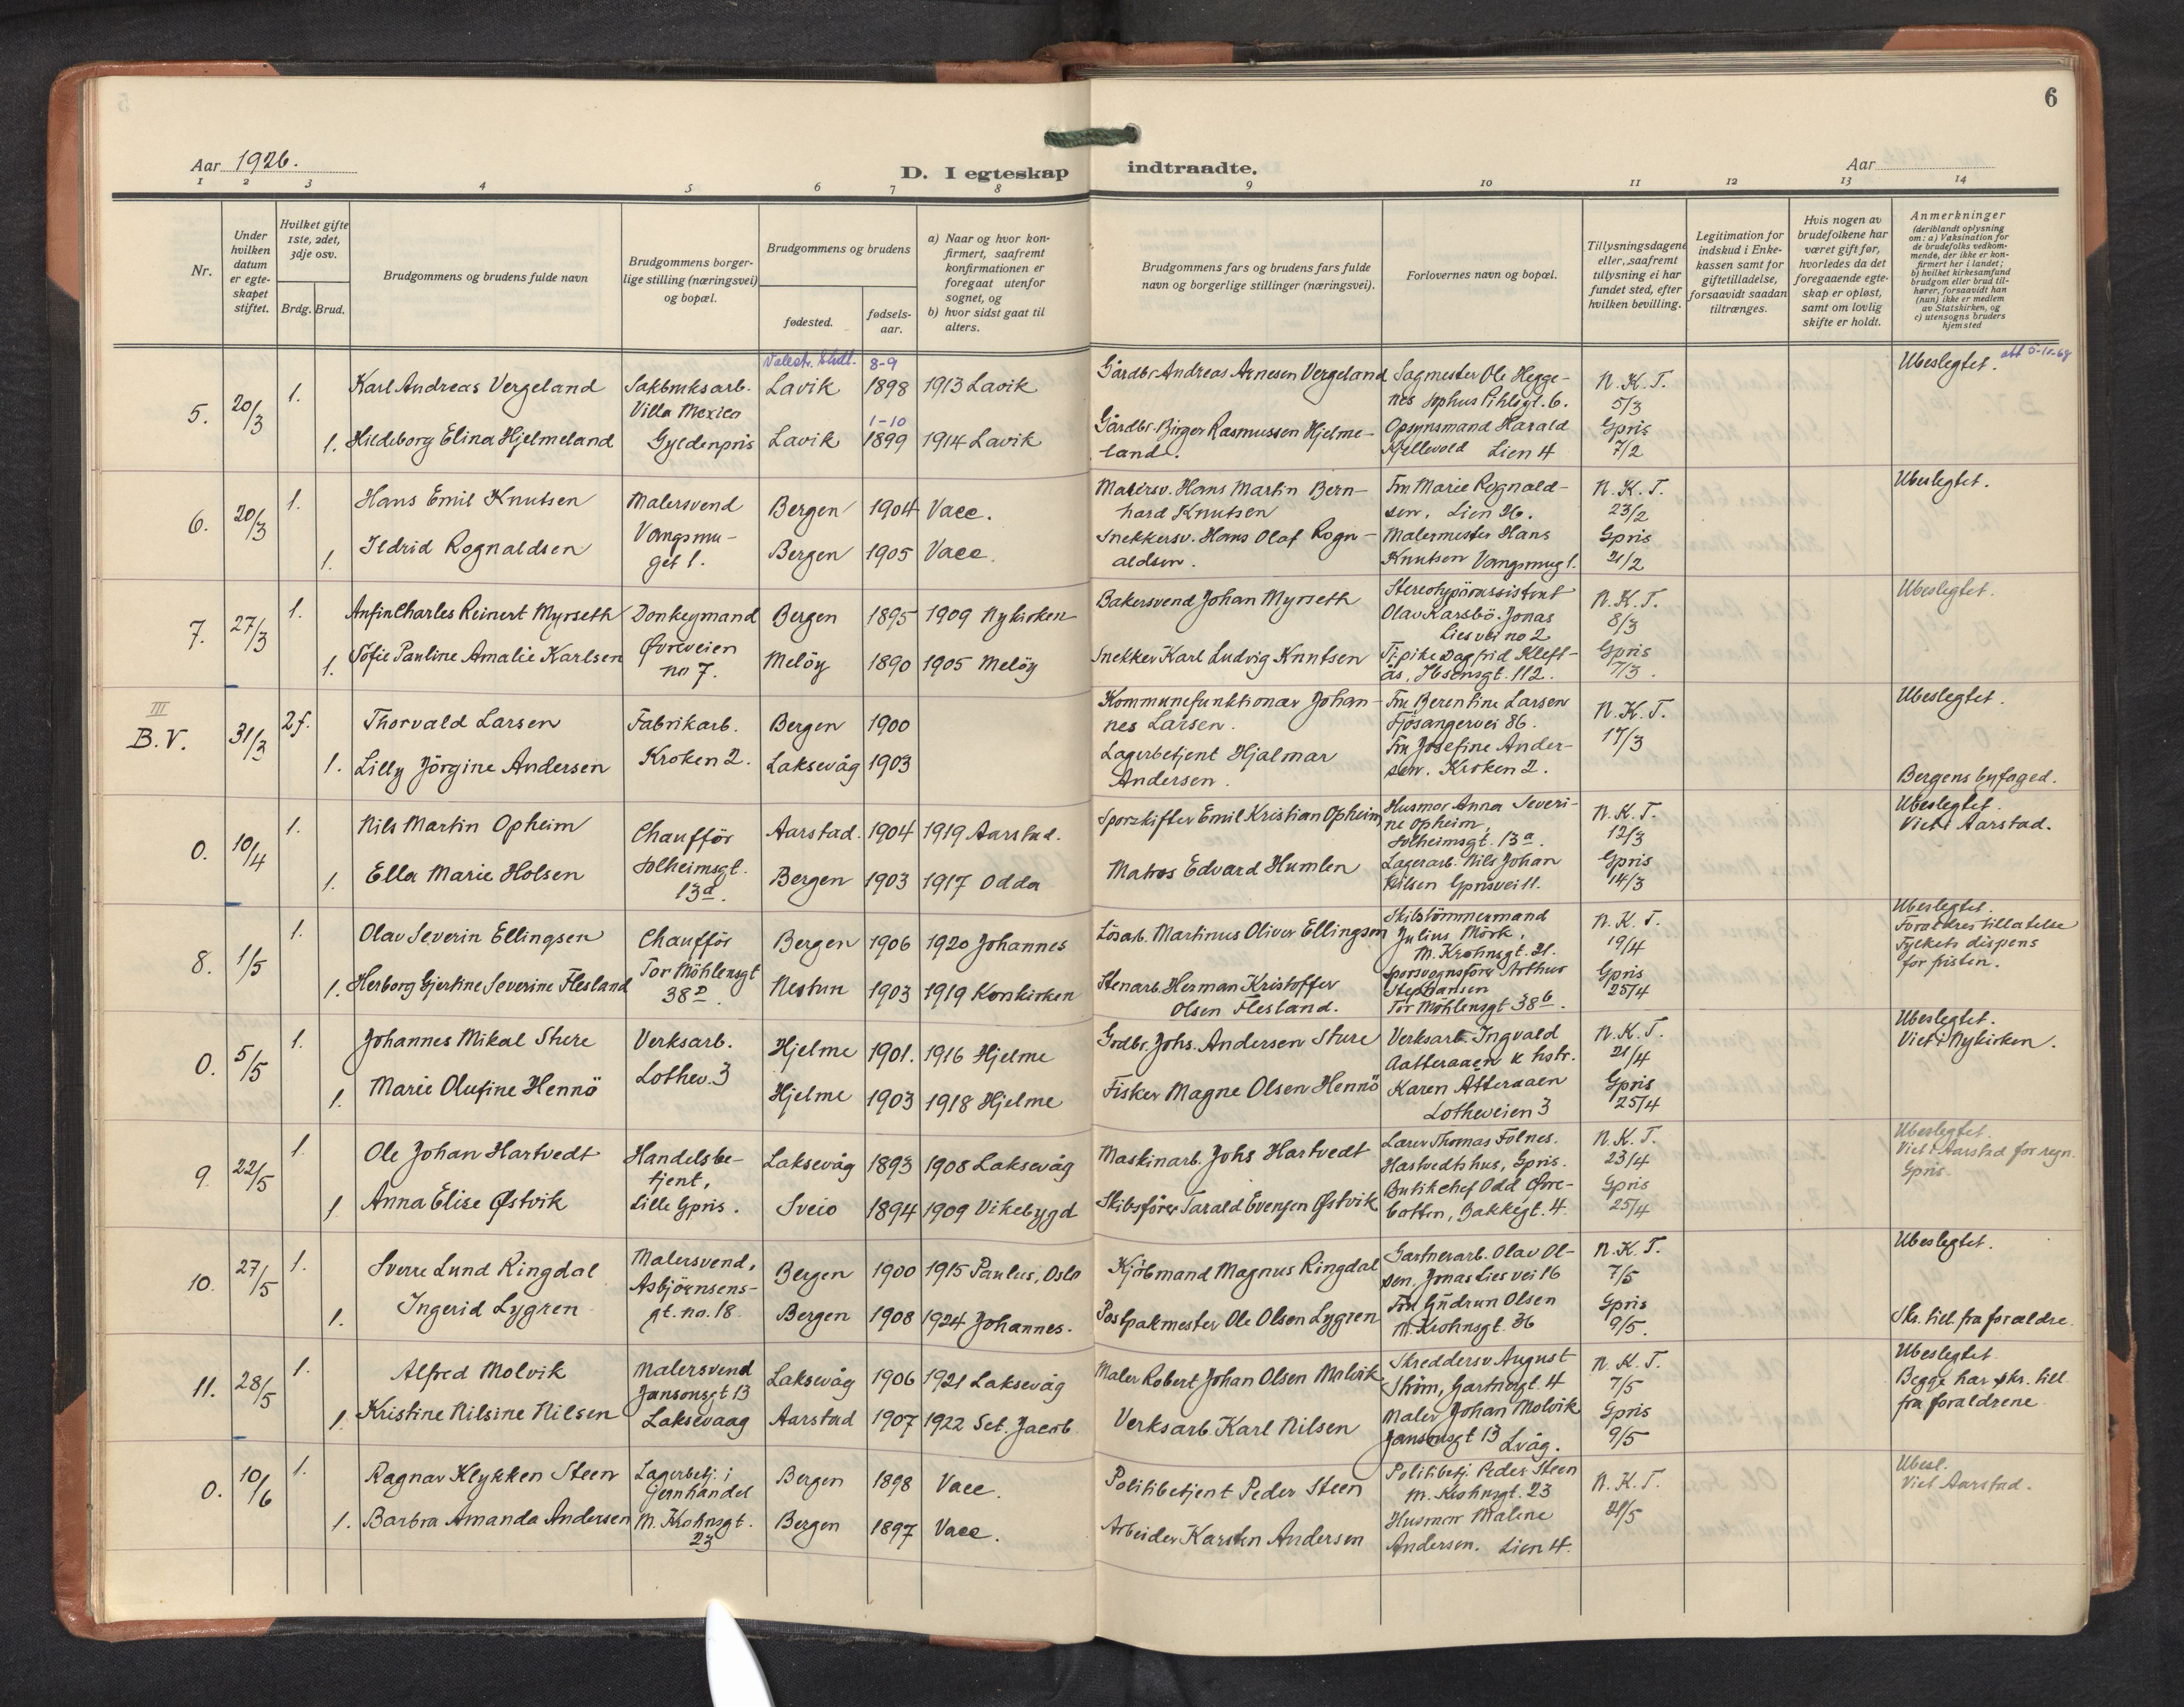 6
Aar 1926.
D. I egteskap indtraadte.
Aar
1 2 3 4 5 6 7 8 9 10 11 12 13 14
Nr.
Under hvilken datum er egteskapet stiftet.
Hvilket gifte 1ste, 2det, 3dje osv.
Brdg. Brud.
Brudgommens og brudens fulde navn
Brudgommens borgerlige stilling (næringsvei) og bopæl.
Brudgommens og brudens
fødested.
fødselsaar.
a) Naar og hvor konfirmert, saafremt konfirmationen er foregaat utenfor sognet, og
b) hvor sidst gaat til alters.
Brudgommens fars og brudens fars fulde navn og borgerlige stillinger (næringsvei).
Forlovernes navn og bopæl.
Tillysningsdagene eller, saafremt tillysning ei har fundet sted, efter hvilken bevilling.
Legitimation for indskud i Enkekassen samt for giftetilladelse, forsaavidt saadan tiltrænges.
Hvis nogen av brudefolkene har været gift før, hvorledes da det foregaaende egteskap er opløst, samt om lovlig skifte er holdt.
Anmerkninger
(deriblandt oplysning om: a) Vaksination for de brudefolks vedkommende, der ikke er konfirmert her i landet;
b) hvilket kirkesamfund brudgom eller brud tilhører, forsaavidt han (hun) ikke er medlem av Statskirken, og
c) utensogns bruders hjemsted
5. 20/3 1. Karl Andreas Vergeland Sakbruksarb. Villa Mexico Lavik 8-9 1898 1913 Lavik Gårdbr. Andreas Arnesen Vergeland Sagmester Ole Heggenes Sophus Pihlsgt. 6. N. K. T. 5/3 Ubeslegtet.
1. Hildeborg Elina Hjelmeland Gyldenpris Lavik 1-10 1899 1914 Lavik Gårdbr. Birger Rasmussen Hjelmeland. Opsynsmand Harald Kjellevold Lien 4 Gpris 7/2
6. 20/3 1. Hans Emil Knutsen Malersvend Bergen 1904 Vacc. Malersv. Hans Martin Bernhard Knutsen Fru Marie Rognaldsen, Lien 26. N. K. T. 23/2 Ubeslegtet.
1. Ildrid Rognaldsen Vangsmuget 1. Bergen 1905 Vacc. Snekkersv. Hans Olaf Rognaldsen. Malermester Hans Knutsen Vangsmug 1. Gpris 21/2
7. 27/3 1. Anfin Charles Reinert Myrseth Donkeymand Bergen 1895 1909 Nykirken Bakersvend Johan Myrseth Stereotypörassistent Olav Karsbö. Jonas Liesvei no 2 N. K. T. 8/3 Ubeslegtet.
1. Sofie Pauline Amalie Karlsen Øvreveien no 7. Melöy 1890 1905 Melöy Snekker Karl Ludvig Knutsen Tj.pike Dagfrid Kleftås, Ibsensgt. 112. Gpris 7/3.
III B.V. 31/3 2f. Thorvald Larsen Fabrikarb. Bergen 1900 Kommunefunktionær Johannes Larsen. Fru Berentine Larsen Fjösangervei 86. N. K. T. 17/3 Ubeslegtet.
1. Lilly Jörgine Andersen Kroken 2. Laksevåg 1903 Lagerbetjent Hjalmar Andersen. Fru Josefine Andersen. Kroken 2. Bergens byfoged.
0. 10/4 1. Nils Martin Opheim Chaufför Aarstad. 1904 1919 Aarstad. Sporskifter Emil Kristian Opheim Husmor Anna Severine Opheim, Solheimsgt. 13a. N. K. T. 12/3 Ubeslegtet. Viet i Aarstad.
1. Ella Marie Holsen Solheimsgt. 13a. Bergen 1903 1917 Odda Matros Edvard Humlen Lagerarb. Nils Johan Nilsen Gprisvei 11. Gpris 14/3
8. 1/5 1. Olav Severin Ellingsen Chaufför Bergen 1906 1920 Johannes Lösarb. Martinus Oliver Ellingsen Skibstömmermand Julius Mörk, M. Krohnsgt. 21. N. K. T. 19/4 Ubeslegtet. Foraldres tillatelse Fylkets dispens for fristen.
1. Herborg Gjertine Severine Flesland Tor Möhlensgt 38 Nestun 1903 1919 Korskirken Stenarb. Herman Kristoffer Olsen Flesland. Sporvognsförer Arthur Stephansen Tor Möhlensgt 38b. Gpris 25/4
0. 5/5 1. Johannes Mikal Sture Verksarb. Hjelme 1901. 1916 Hjelme Grdbr. Johs. Andersen Sture Verksarb. Ingvald Aatteraaen & hstr. N. K. T. 21/4 Ubeslegtet. Viet i Nykirken.
1. Marie Olufine Hennö Lothev. 3 Hjelme 1903 1918 Hjelme Fisker Magne Olsen Hennö Karen Atteraaen Lotheveien 3 Gpris 25/4
9. 22/5 1. Ole Johan Hartvedt Handelsbetjent, Laksevåg 1893 1908 Laksevåg Maskinarb. Johs Hartvedt Lærer Thomas Folnes. Hastvedtshus, Gpris. N. K. T. 23/4 Ubeslegtet. Viet i Aarstad for regn. Gpris.
1 Anna Elise Østvik Lille Gpris. Sveio 1894 1909 Vikebygd Skibsförer Tarald Evensen Østvik Butikchef Odd Øvrebotten, Bakkegt. 4. Gpris 25/4
10. 27/5 1. Sverre Lund Ringdal Malersvend, Bergen 1900 1915 Paulus, Oslo Kjöbmand Magnus Ringdal Gartnerarb. Olav Olsen, Jonas Lies vei 16 N. K. T. 7/5 Ubeslegtet.
1. Ingerid Lygren Asbjörnsensgt. no. 18. Bergen 1908 1924 Johannes. Postpakmester Ole Olsen Lygren Fru Gudrun Olsen M. Krohnsgt. 36 Gpris 9/5. Skr. till. fra forældre.
11. 28/5 1. Alfred Molvik Malersvend Jansonsgt 13 Laksevåg 1906 1921 Laksevåg Maler Robert Johan Olsen Molvik Skreddersv August Ström, Gartnergt. 4 N. K. T. 7/5 Ubeslegtet. Begge har skr. till. fra foraldrene
1. Kristine Nilsine Nilsen Laksevaag Aarstad 1907 1922 Sct. Jacob Verksarb. Karl Nilsen Maler Johan Molvik Jansonsgt 13 Lvåg. Gpris 9/5
0. 10/6 1. Ragnar Klykken Steen Lagerbetj. i jernhandel Bergen 1898 Vacc. Politibetjent Peder Steen Politibetj. Peder Steen M. Krohnsgt. 23 N. K. T. 21/5 Ubesl. Viet Aarstad.
1. Barbra Amanda Andersen M. Krohnsgt. 23 Bergen 1897 Vacc. Arbeider Karsten Andersen Husmor Malene Andersen. Lien 4.